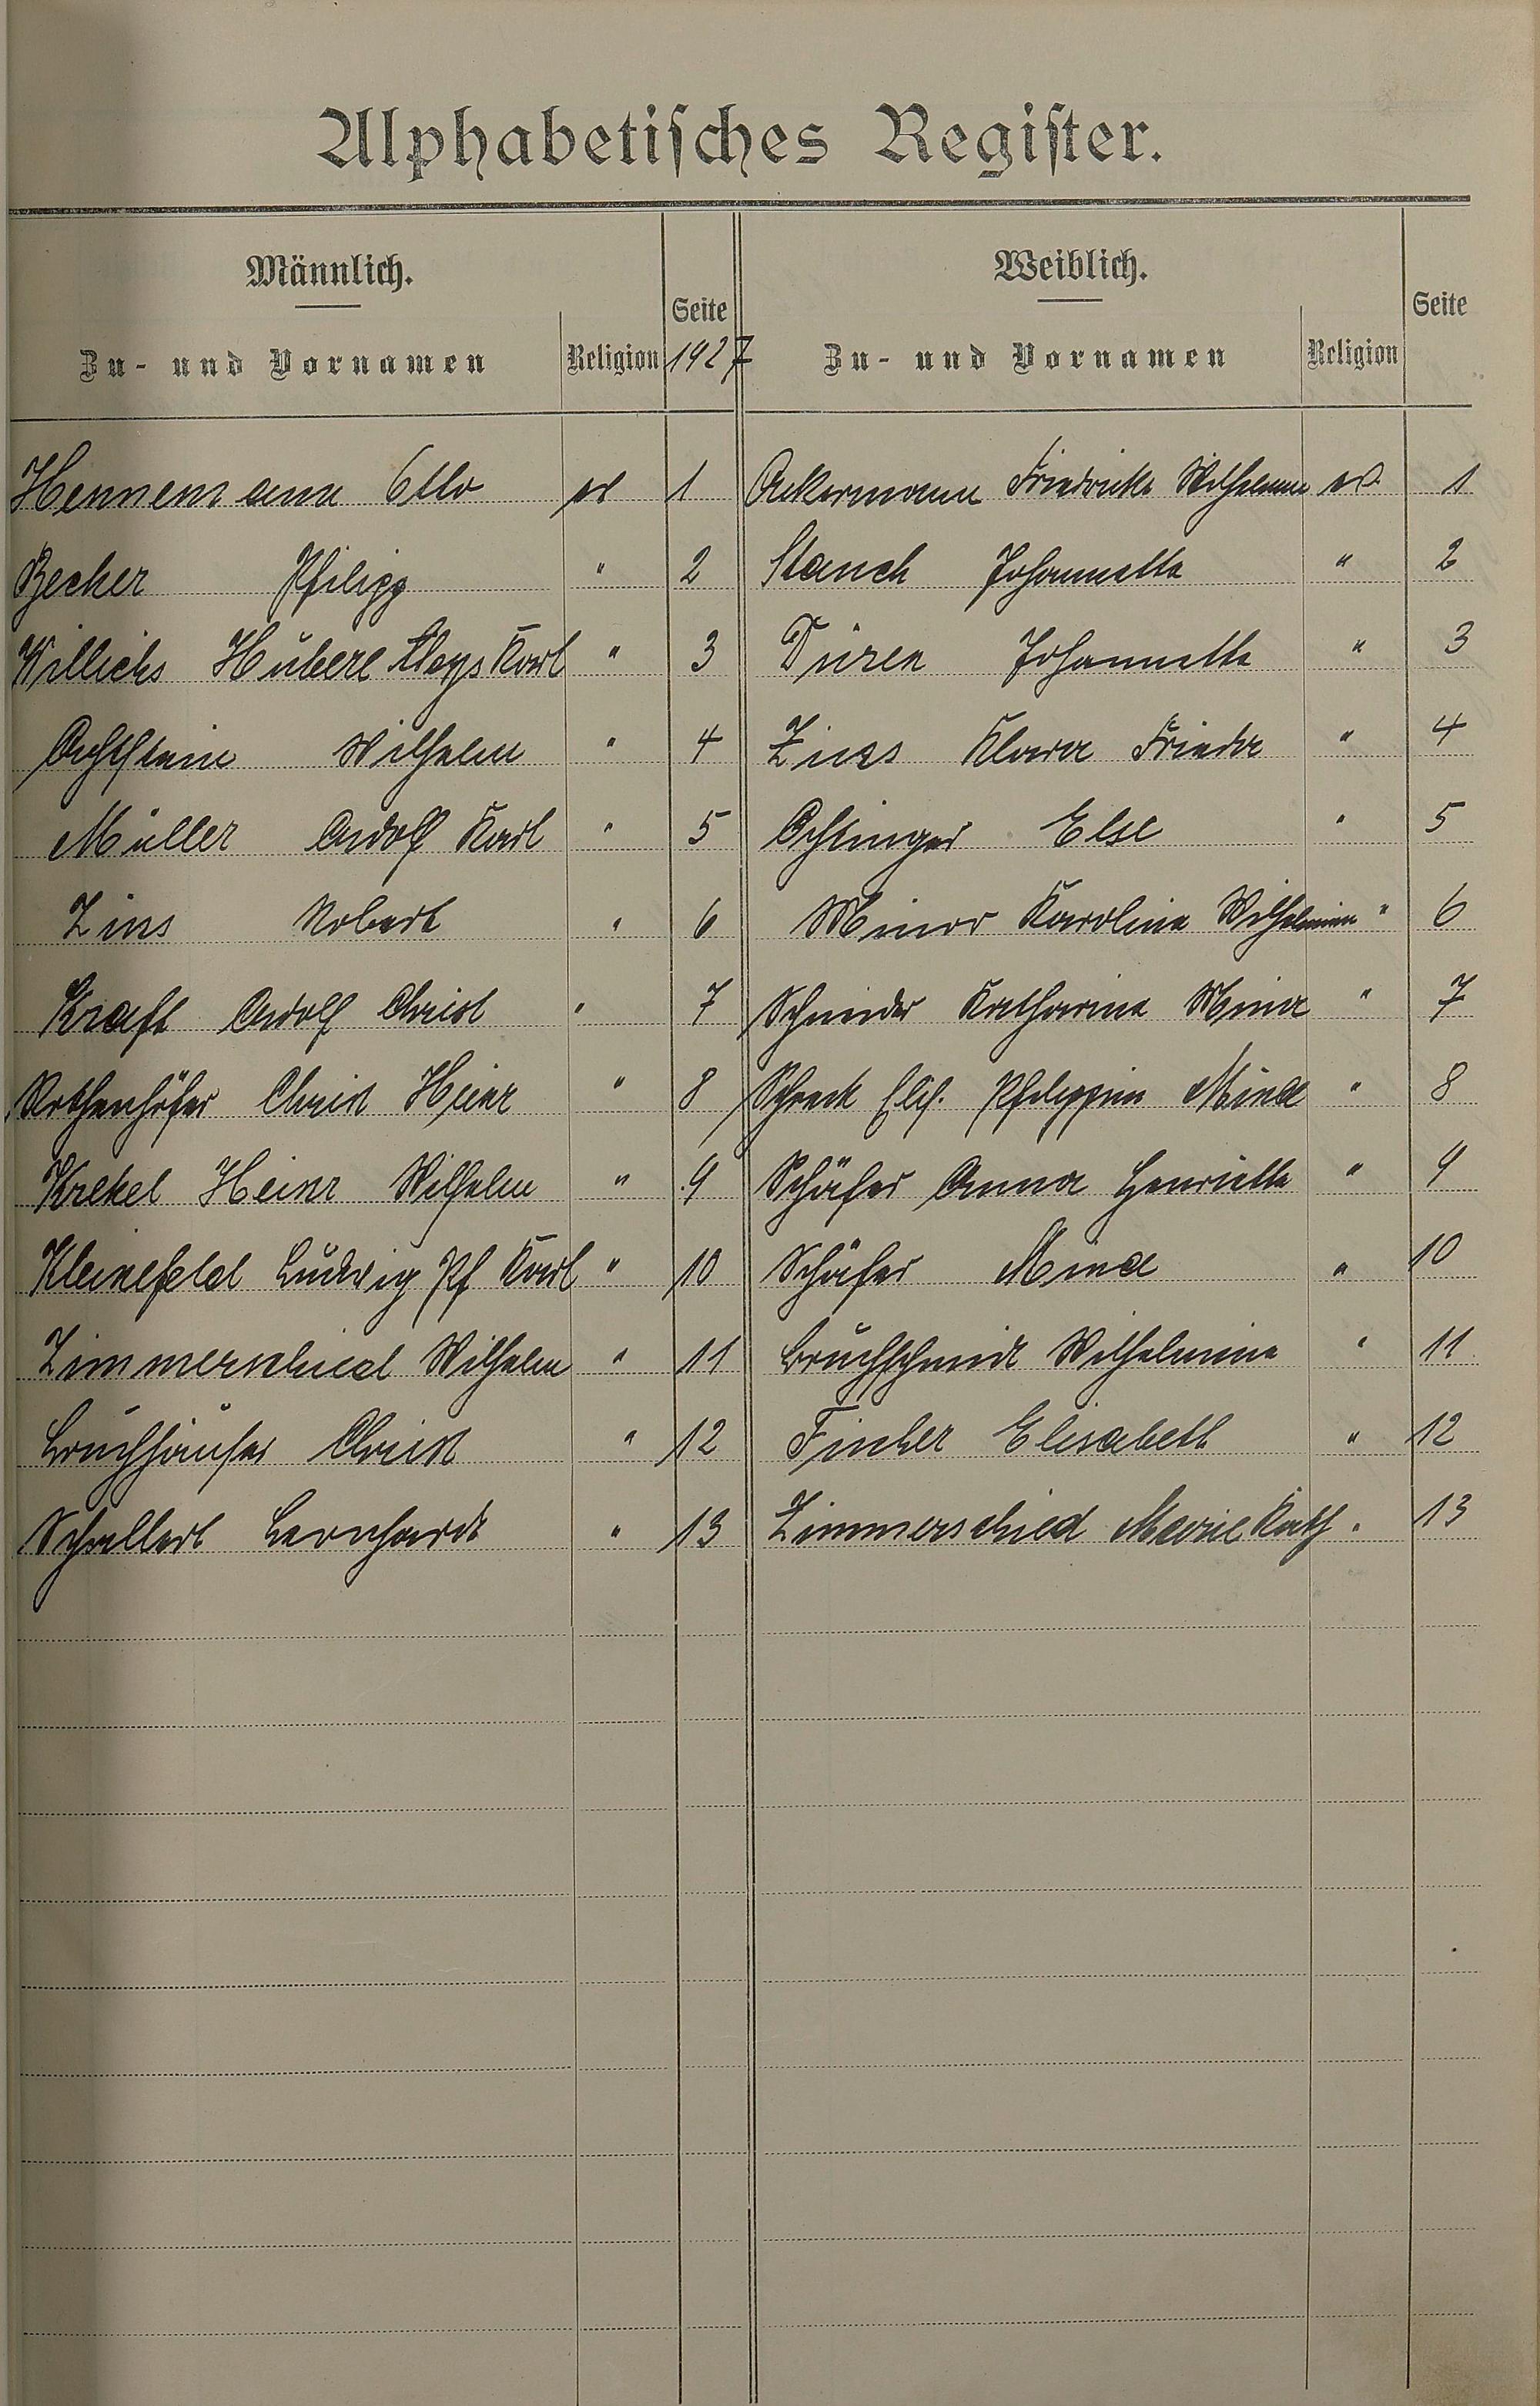 Alphabetisches Register.
Männlich. Weiblich.
Seite Seite
Zu- und Vornamen Religion 1927 Zu- und Vornamen Religion
Hennemann Otto ev 1 Ackermann Friedricke Wilhelmine ev. 1
Becker Philipp " 2 Stauch Johannette " 2
Willichs Hubert Aloys Karl " 3 Düren Johannette " 3
Wilhelm " 4 Zins Klara Frieda " 4
Müller Adolf Karl " 5 Else " 5
Zins Robert " 6 Minor Karoline Wilhelmine " 6
Kraft Adolf Christ " 7 Schneider Katharina Mina " 7
Rothenhöfer Christ Heinr " 8 Schenk Elis. Philippine Mina " 8
Krekel Heinr Wilhelm " 9 Schäfer Anna Henriette " 9
Kleinefeld Ludwig Ph Karl " 10 Schäfer Mina " 10
Zimmerschied Wilhelm " 11 Bruchschmidt Wilhelmine " 11
Bruchhäuser Christ " 12 Fischer Elisabeth " 12
Schallert Bernhardt " 13 Zimmerschied Marie Kath " 13